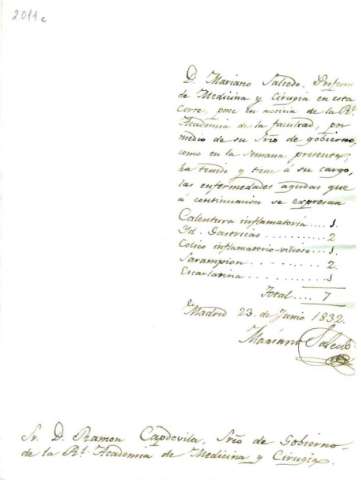 2011c
D. Mariano Salcedo, Profesor
de Medicina y Cirugia en esta
Corte, pone en noticia de la Rl.
Academia de la facultad, por
medio de su Srio de gobierno,
como en la semana presente,
ha tenido y tiene á su cargo,
las enfermedades agudas que
á continuación se expresan
Calentura inflamatoria.... 1.
Id. Gastricas............. 2
Colico inflamatorio-vilioso.. 1.
Sarampion............ 2.
Escarlatina............ 1
Total.... 7
Madrid 23 de Junio 1832.
Mariano Salcedo
Sr. D. Ramon Capdevila, Srio de Gobierno-
de la Rl. Academia de Medicina y Cirugia.